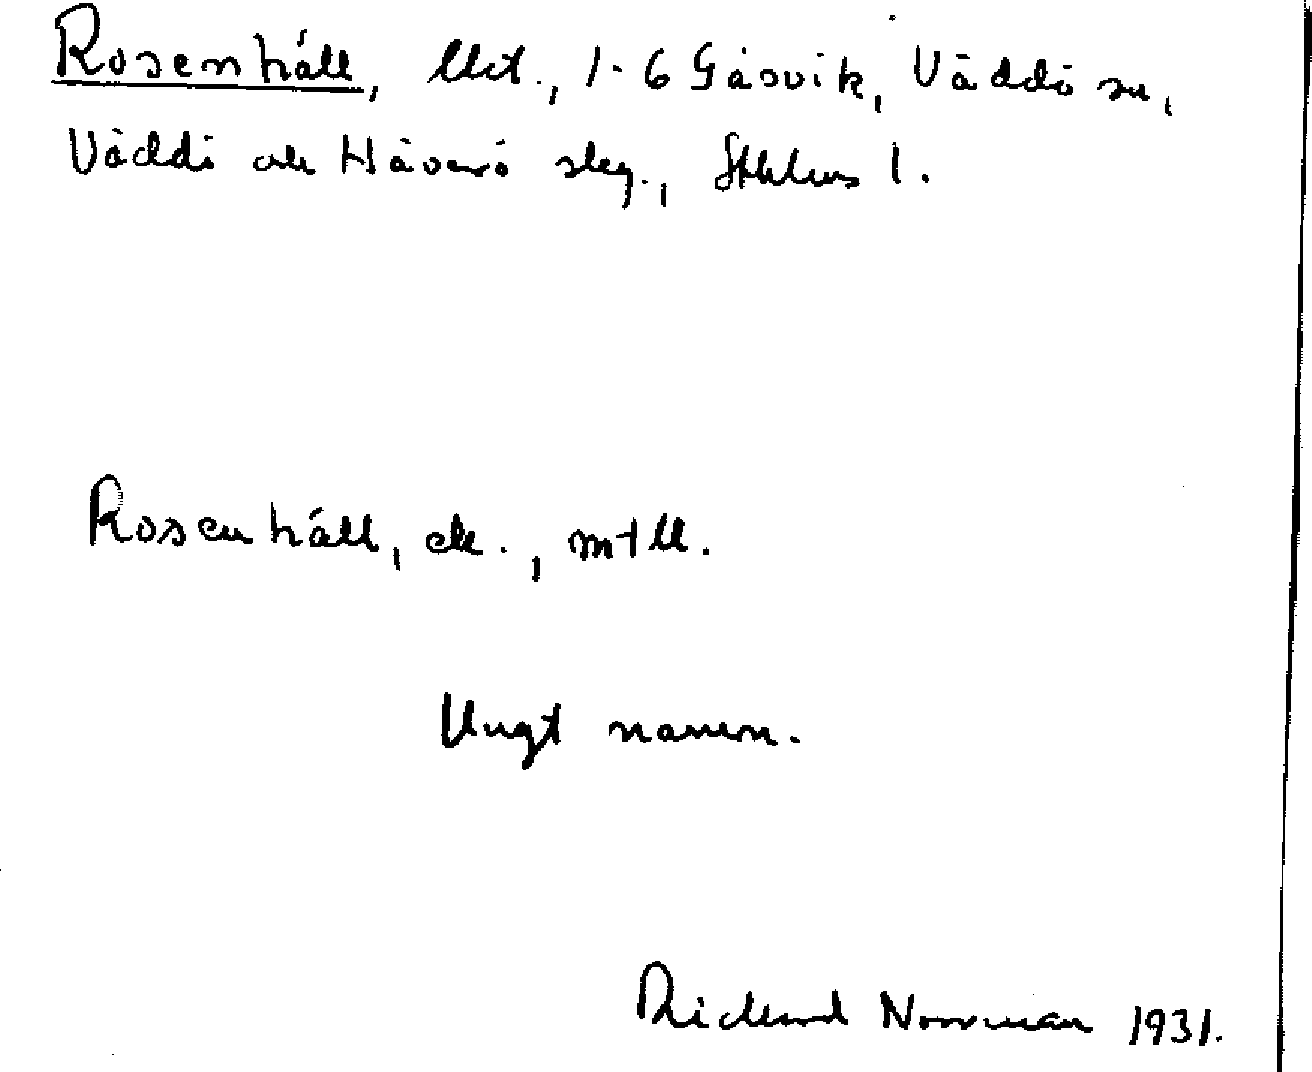 Rosenhäll, lht., 1-6 Gåsvik, Väddö sn,
Väddö och Häverö skg., Sthlms l.
Rosenhäll, ck., m+ll.
Ungt namn.
Rickard Norrman 1931.